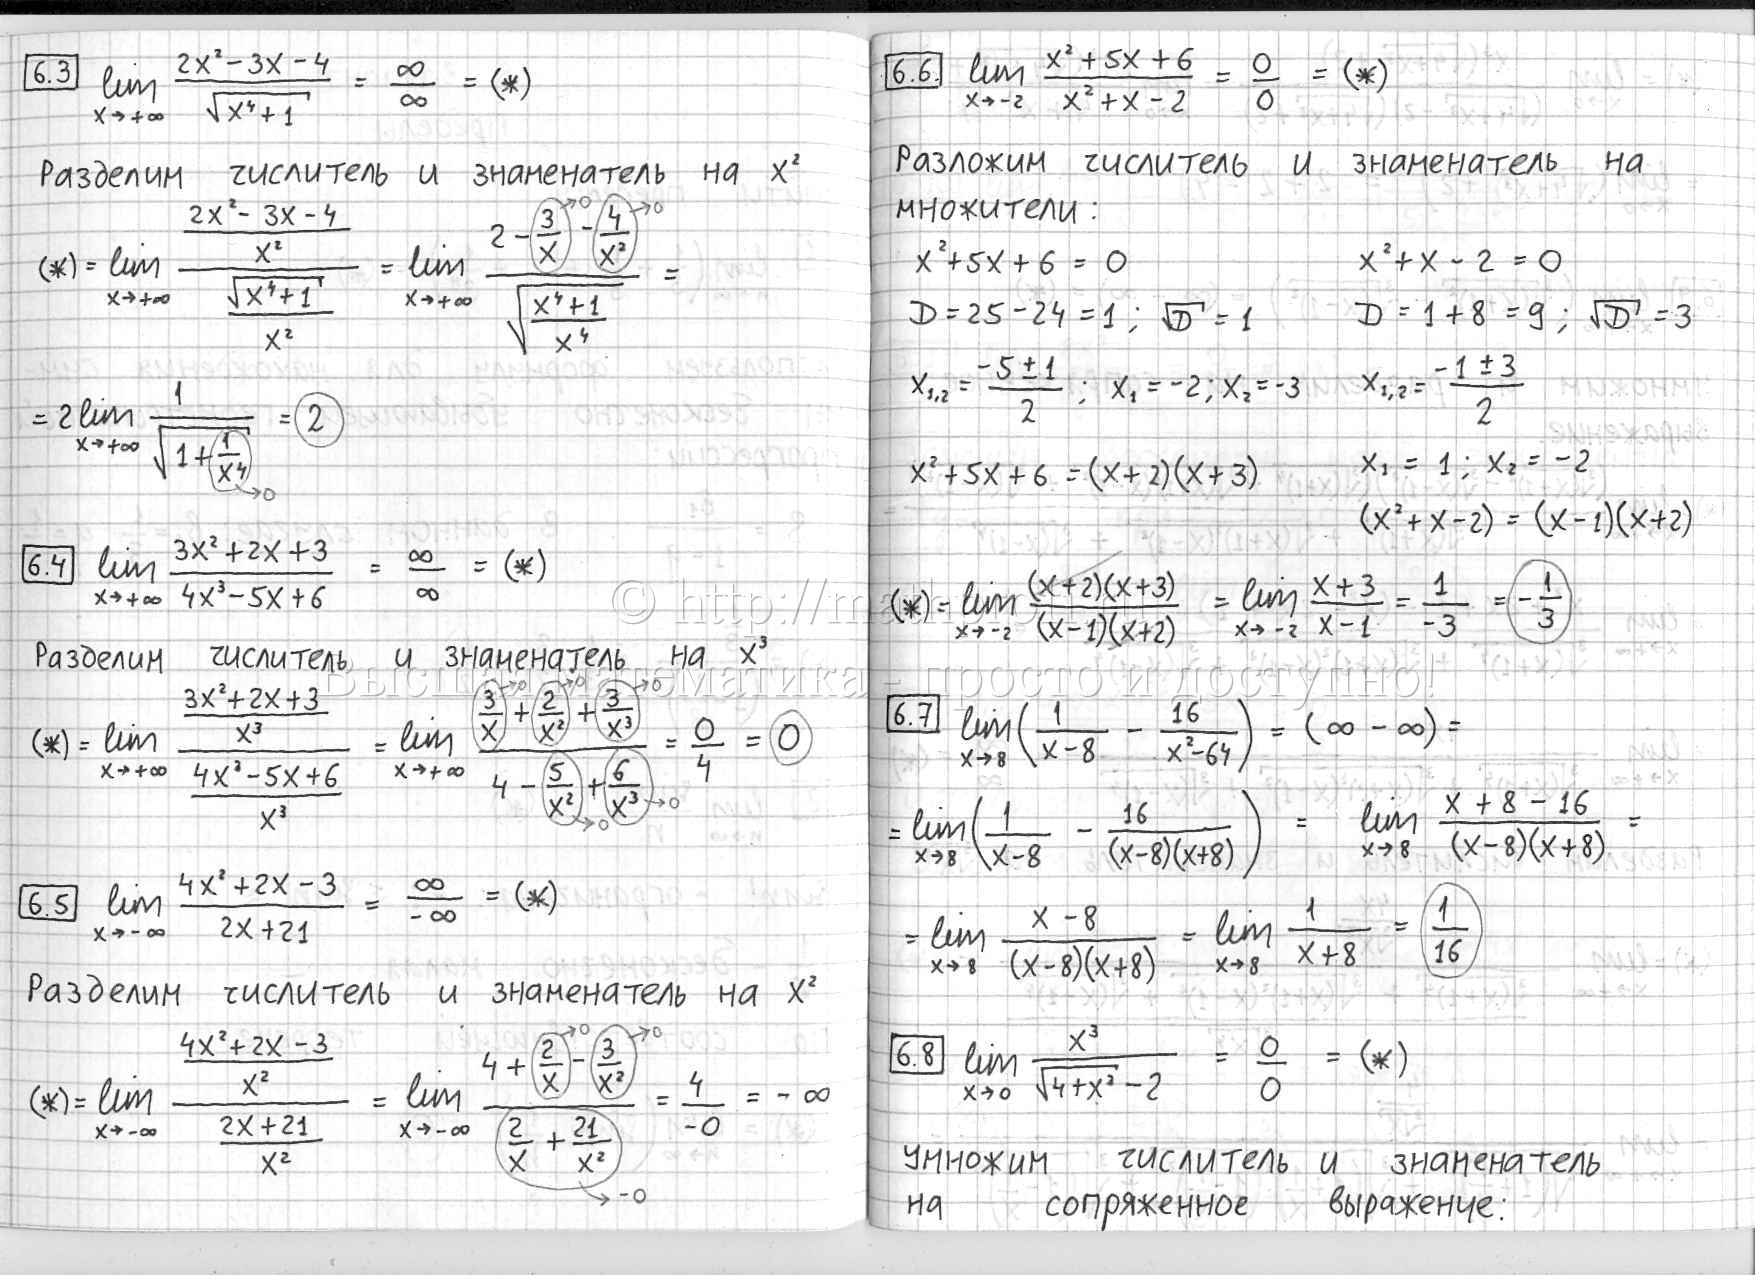 6.3 lim x→+∞ (2x² − 3x − 4)/√(x⁴ + 1) = ∞/∞ = (*)
Разделим числитель и знаменатель на x²
(*) = lim x→+∞ ((2x² − 3x − 4)/x²)/(√(x⁴ + 1)/x²) = lim x→+∞ (2 − 3/x →0 − 4/x² →0)/√((x⁴ + 1)/x⁴) =
= 2 lim x→+∞ 1/√(1 + 1/x⁴ →0) = 2
6.4 lim x→+∞ (3x² + 2x + 3)/(4x³ − 5x + 6) = ∞/∞ = (*)
Разделим числитель и знаменатель на x³
(*) = lim x→+∞ ((3x² + 2x + 3)/x³)/((4x³ − 5x + 6)/x³) = lim x→+∞ (3/x →0 + 2/x² →0 + 3/x³ →0)/(4 − 5/x² →0 + 6/x³ →0) = 0/4 = 0
6.5 lim x→−∞ (4x² + 2x − 3)/(2x + 21) = ∞/−∞ = (*)
Разделим числитель и знаменатель на x²
(*) = lim x→−∞ ((4x² + 2x − 3)/x²)/((2x + 21)/x²) = lim x→−∞ (4 + 2/x →0 − 3/x² →0)/(2/x + 21/x² →−0) = 4/−0 = −∞
6.6. lim x→−2 (x² + 5x + 6)/(x² + x − 2) = 0/0 = (*)
Разложим числитель и знаменатель на
множители:
x² + 5x + 6 = 0
D = 25 − 24 = 1; √D = 1
x₁,₂ = (−5 ± 1)/2; x₁ = −2; x₂ = −3
x² + 5x + 6 = (x + 2)(x + 3)
x² + x − 2 = 0
D = 1 + 8 = 9; √D = 3
x₁,₂ = (−1 ± 3)/2
x₁ = 1; x₂ = −2
(x² + x − 2) = (x − 1)(x + 2)
(*) = lim x→−2 (x + 2)(x + 3)/(x − 1)(x + 2) = lim x→−2 (x + 3)/(x − 1) = 1/−3 = −1/3
6.7 lim x→8 (1/(x − 8) − 16/(x² − 64)) = (∞ − ∞) =
= lim x→8 (1/(x − 8) − 16/(x − 8)(x + 8)) = lim x→8 (x + 8 − 16)/(x − 8)(x + 8) =
= lim x→8 (x − 8)/(x − 8)(x + 8) = lim x→8 1/(x + 8) = 1/16
6.8 lim x→0 x³/(√(4 + x²) − 2) = 0/0 = (*)
Умножим числитель и знаменатель
на сопряженное выражение:
© http://mathprofi
Высшая математика - просто и доступно!